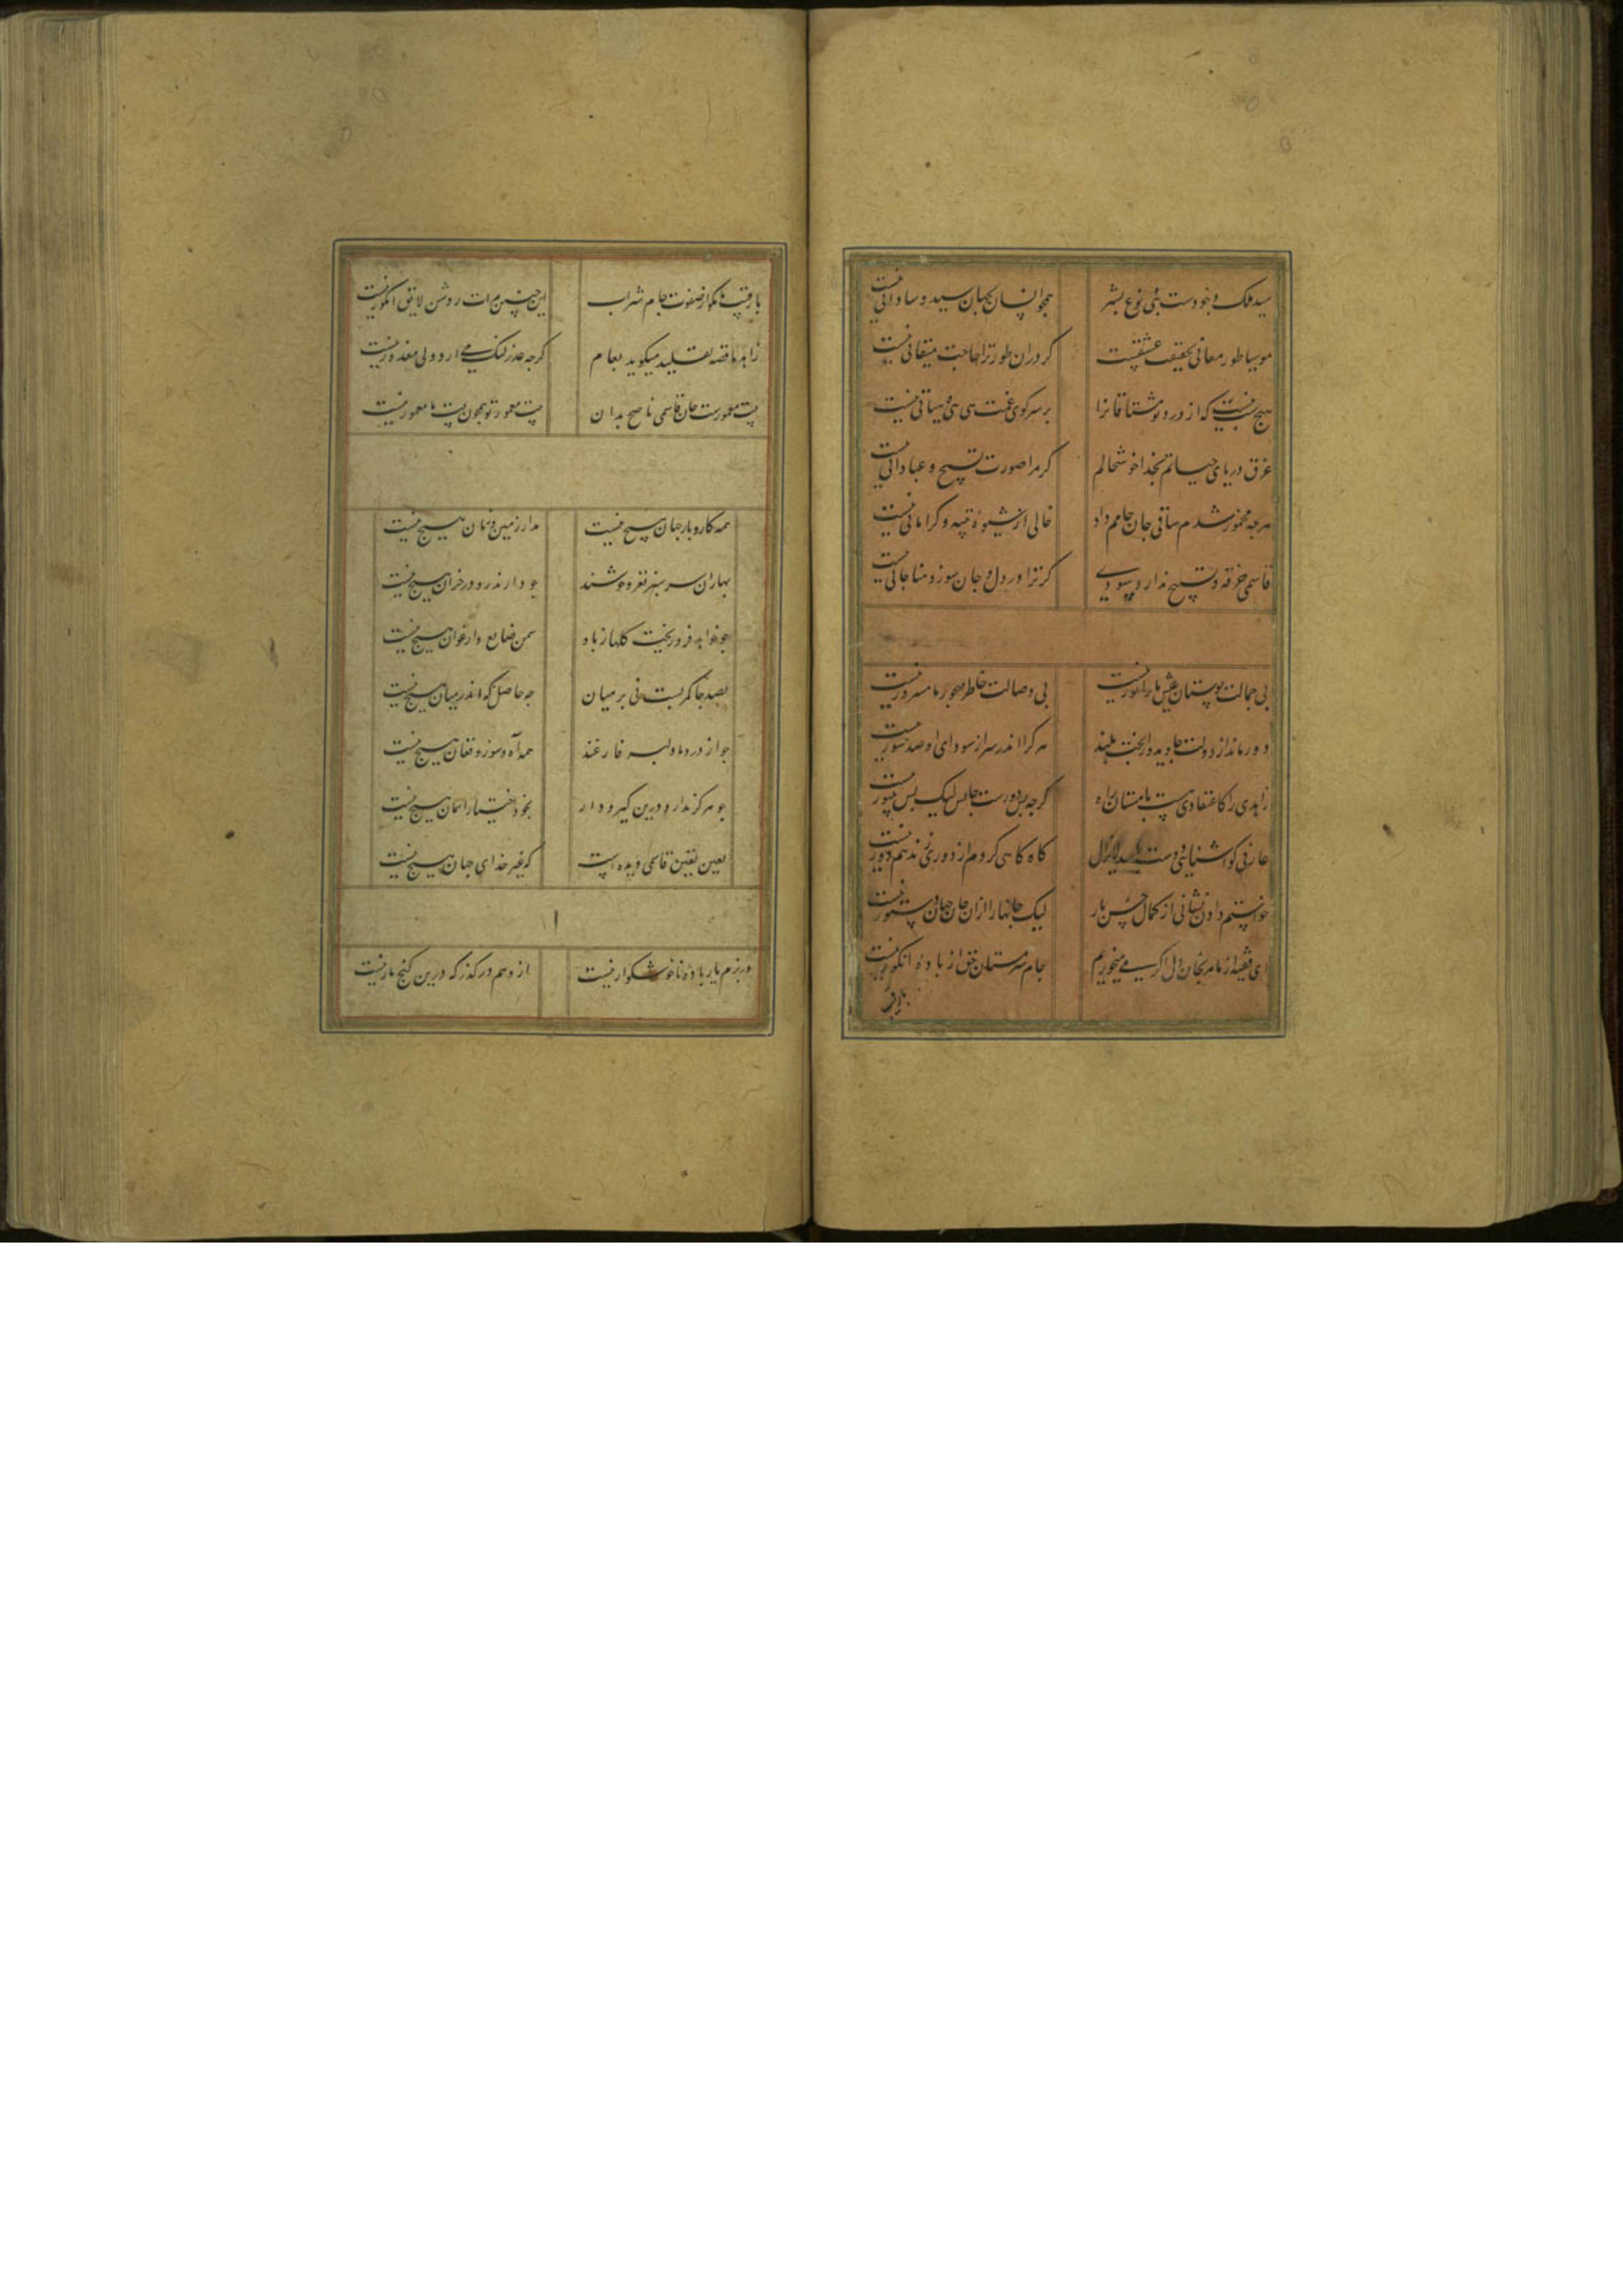 سید ملک وجودست بنی نوع بشر همچو انسان بجهان سید و ساداتی نیست
موسیا طور معانی بحقیقت عشقست کر دران طور ترا حاجت میقاتی نیست
هیچ شب نیست که از درد تو مشتاقانرا بر سر کوی غمت هی هی و هیهاتی نیست
غرق دریای حیاتم بخدا خوشحالم کر مرا صورت تسبیح و عباداتی نیست
هر چه مخمور شدم ساقی جان جامم داد خالی از شیوهٔ تنبیه و کراماتی نیست
قاسمی خرقه و تسبیح ندارد سودی کر ترا در دل و جان سوز و مناجاتی نیست
بی جمالت بوستان عیش ما را نور نیست بی وصالت خاطر مهجور ما مسرور نیست
دور ماند از دولت جاوید و از بخت بلند هر کرا اندر سر از سودای او صد شور نیست
زاهدی را کاعتقادی هست با مستان راه کرچه بس دورست جایش لیک بس دور نیست
عارفی کو آشنایی دوست کاه کاهی کر دم از دوری زند هم دور نیست
خواستم دادن نشانی از کمال حسن یار لیک جانها را ازان جان جهان دستور نیست
ای فقیه از ما مرنجان دل اکر می میخوریم جام سرمستان حق از بادهٔ انکور نیست
با رقیب
با رقیب ما مکو از صفوت جام شراب این چنین مرات روشن لایق انکور نیست
زاهد ما قصه تقلید میکوید بعام کرچه عذر لنک می آرد ولی معذور نیست
بیت معمورست جان قاسمی ناصح بدان بیت معمور تو همچون بیت ما معمور نیست
همه کار و بار جهان هیچ نیست مدار زمین و زمان هیچ نیست
بهاران سرسبز نغز و خوشند چو دارند رو در خزان هیچ نیست
چو خواهد فرو ریخت کلها ز باد سمن ضایع و ارغوان هیچ نیست
بصد جا کمر بست نی بر میان چه حاصل که اندر میان هیچ نیست
چو از درد ما دلبر فارغند همه آه و سوز و فغان هیچ نیست
چو مرکز ندارد درین کیر و دار بخود اختیار آسمان هیچ نیست
بعین یقین قاسمی دیده است که غیر خدای جهان هیچ نیست
در بزم یار بادهٔ ناخوشکوار نیست از وهم درکذر که درین کنج مار نیست